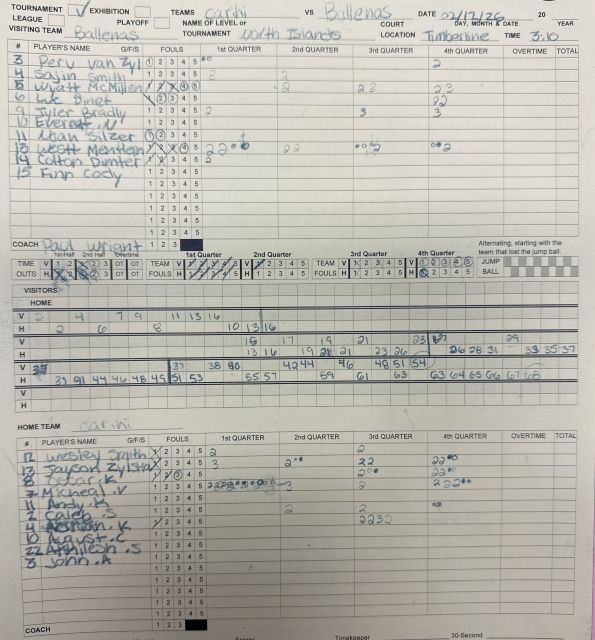 TOURNAMENT ✓ EXHIBITION TEAMS carihi VS Ballenas DATE 02/12/26 20
LEAGUE PLAYOFF NAME OF LEVEL or COURT DAY, MONTH & DATE YEAR
VISITING TEAM Ballenas TOURNAMENT North Islands LOCATION Timberline TIME 3:10
# PLAYER'S NAME G/F/S FOULS 1st QUARTER 2nd QUARTER 3rd QUARTER 4th QUARTER OVERTIME TOTAL
3 Peru van Zyl 1 2 3 4 5 2
4 Sajin Smith 1 2 3 4 5 3 2
5 Wyatt McMillen 1 2 3 4 5 2 23 23
6 Luc Binet 1 2 3 4 5 22
9 Tyler Bradly 1 2 3 4 5 2 3 3
10 Everett .N 1 2 3 4 5
11 Noah Silzer 1 2 3 4 5
13 1 2 3 4 5 22 22 2 2
14 Colton Dimter 1 2 3 4 5 2
15 Finn Cody 1 2 3 4 5
1 2 3 4 5
1 2 3 4 5
1 2 3 4 5
1 2 3 4 5
COACH Paul Wright 1 2 3
1st Half 2nd Half Overtime 1st Quarter 2nd Quarter 3rd Quarter 4th Quarter Alternating, starting with the team that lost the jump ball.
TIME V 1 2 3 OT OT TEAM V 1 2 3 4 5 V 1 2 3 4 5 TEAM V 1 2 3 4 5 V 1 2 3 4 5 JUMP
OUTS H 2 3 OT OT FOULS H 1 2 3 4 5 H 1 2 3 4 5 FOULS H 1 2 3 4 5 H 1 2 3 4 5 BALL
VISITORS
HOME
V 2 4 7 9 11 13 16
H 2 6 8 10 13 16
V 16 17 19 21 23 29
H 13 16 19 21 21 23 26 26 28 31 33 35 37
V 37 38 40 42 44 46 48 51 54
H 39 41 44 46 48 49 51 53 55 57 59 61 63 63 64 65 66 67 68
V
H
HOME TEAM carihi
# PLAYER'S NAME G/F/S FOULS 1st QUARTER 2nd QUARTER 3rd QUARTER 4th QUARTER OVERTIME TOTAL
12 Wesley Smith 1 2 3 4 5 2 2
13 Jayson Zylstra 1 2 3 4 5 3 2 22 22
8 Oskar.K 1 2 3 4 5 2 22
7 Micheal .V 1 2 3 4 5 3 2 222
11 Andy.K 1 2 3 4 5
2 Caleb .S 1 2 3 4 5 2 2
4 .K 1 2 3 4 5 2232
10 August.C 1 2 3 4 5
22 Akhilesh .S 1 2 3 4 5
3 John .A 1 2 3 4 5
1 2 3 4 5
1 2 3 4 5
1 2 3 4 5
1 2 3 4 5
COACH 1 2 3
Scorer Timekeeper 30-Second